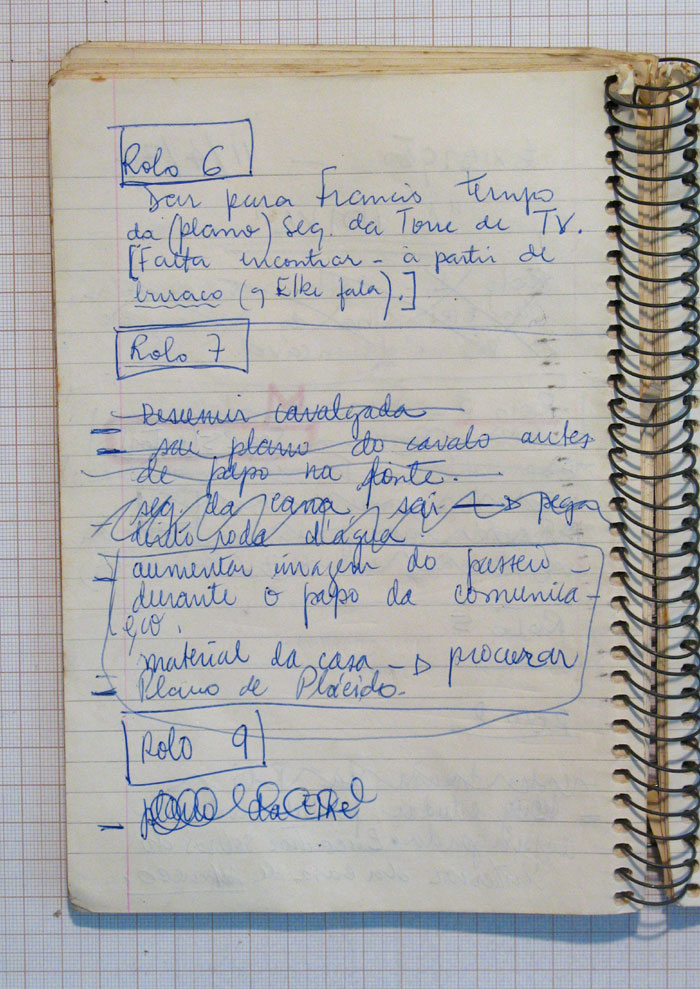 Rolo 6
Dar para Francis tempo
da (plano) Seg. da Torre de TV.
[Falta encontrar - à partir de
buraco (q Elke fala).]
Rolo 7
Resumir cavalgada
sai plano do cavalo antes
de papo na fonte.
seg da cama sai → pega
roda d'agua
aumentar imagem do passeio -
durante o papo da comunica-
ção.
material da casa → procurar
Plano de Plácido.
Rolo 9
plano da Elke